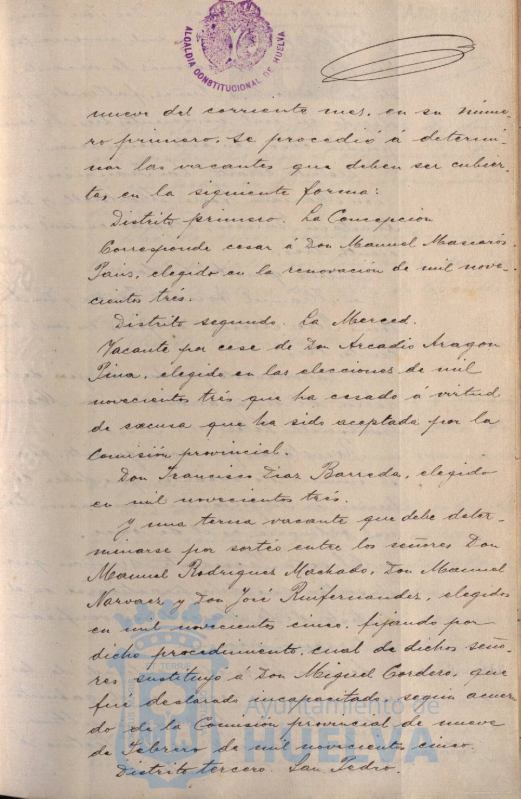 ALCALDIA CONSTITUCIONAL DE HUELVA
nueve del corriente mes, en su núme-
ro primero, se procedió á determi-
nar las vacantes que deben ser cubier-
tas en la siguiente forma:
Distrito primero. La Concepción
Corresponde cesar á Don Manuel Mascarós
Pans, elegido en la renovación de mil nove-
cientos trés.
Distrito segundo. La Merced.
Vacante por cese de Don Arcadio Aragon
Pina, elegido en las elecciones de mil
novecientos trés que ha cesado á virtud
de excusa que ha sido aceptada por la
Comisión provincial.
Don Francisco Diaz Barreda, elegido
en mil novecientos trés.
Y una terna vacante que debe deter-
minarse por sortéo entre los señores Don
Manuel Rodriguez Machado, Don Manuel
Narvaez y Don José Ruifernandez, elegidos
en mil novecientos cinco, fijando por
dicho procedimiento, cual de dichos seño-
res sustituyó á Don Miguel Cordero, que
fué declarado incapacitado, según acuer-
do de la Comisión provincial de nueve
de Febrero de mil novecientos cinco.
Distrito tercero. San Pedro.
Ayuntamiento de
HUELVA